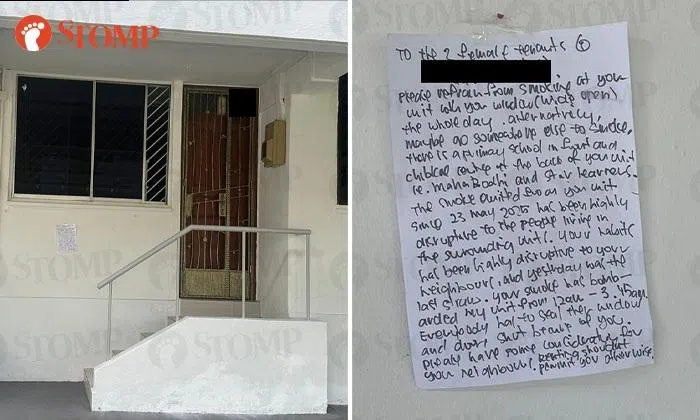 STOMP
TO the 2 female tenants
please refrain from smoking at your
unit with your window (wide open)
the whole day. alternatively,
maybe go someone else to smoke.
there is a primary school in front and
childcare centre at the back of your unit
ie. Maha Bodhi and Star Learners.
The smoke emitted from your unit
since 23 may 2025 has been highly
disruptive to the people living in
the surrounding units. Your habits
has been highly disruptive to your
neighbour, and yesterday was the
last straw. Your smoke has bomb-
arded my unit from 12am - 3.45am
Everybody had to seal their window
and door shut because of you.
please have some consideration for
your neighbours. Renting shouldn't
permit you otherwise.